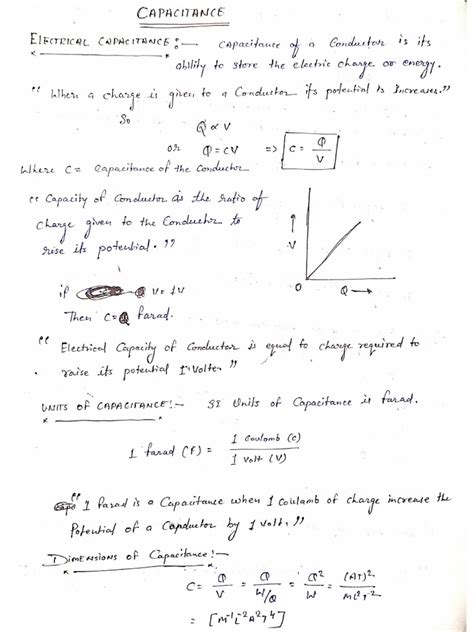 CAPACITANCE
ELECTRICAL CAPACITANCE :— Capacitance of a Conductor is its
ability to store the electric charge or energy.
"When a charge is given to a Conductor its potential is Increases."
So
Q ∝ V
or Q = CV => C = Q/V
Where C = Capacitance of the Conductor
"Capacity of Conductor is the ratio of
charge given to the Conductor to
rise its potential."
V
O Q →
if V = 1V
Then C = Q farad.
"Electrical Capacity of Conductor is equal to charge required to
raise its potential 1 Volte."
UNITS OF CAPACITANCE!— SI Units of Capacitance is farad.
1 farad (F) = 1 Coulomb (C) / 1 Volt (V)
"1 Farad is a Capacitance when 1 Coulamb of charge increase the
Potential of a Conductor by 1 Volt."
Dimensions of Capacitance!—
C = Q/V = Q/W/Q = Q²/W = (AT)²/ML²T⁻²
= [M⁻¹L⁻²A²T⁴]